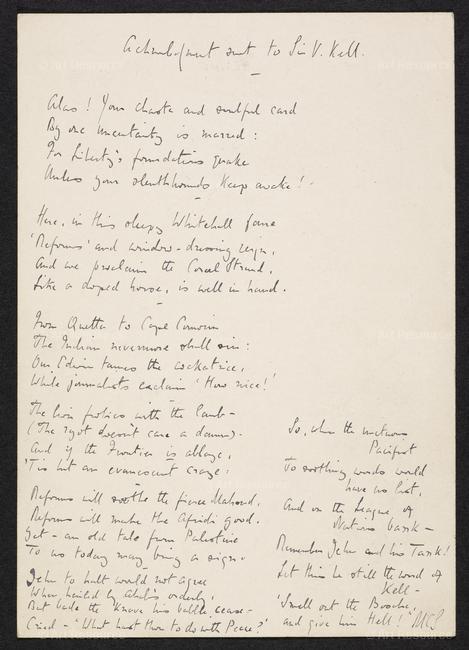 Acknowledgment sent to Sir V. Kell.
Alas! Your chaste and soulful card
By one uncertainty is marred:
For Liberty's foundations quake
Unless your sleuthhounds keep awake!
Here, in this sleepy Whitehall fane
'Reforms' and window-dressing reign,
And we proclaim the Coral Strand,
Like a doped horse, is well in hand.
From Quetta to Cape Comorin
The Indian nevermore shall sin:
Our Edwin tames the cockatrice,
While journalists exclaim 'How nice!'
The lion frolics with the lamb -
(The ryot doesn't care a damn) -
And if the Frontier is ablaze,
'Tis but an evanescent craze:
Reforms will soothe the fierce Mahsud,
Reforms will make the Afridi good.
Yet - an old tale from Palestine
To us today may bring a sign.
Jehu to halt would not agree
When hailed by Ahab's orderly,
But bade the knave his babble cease -
Cried - 'What hast thou to do with Peace?'
So, when the
Pacifist
To soothing words would
have us list,
And on the League of
Nations bank -
Remember Jehu and his Task!
Let this be still the word of
Kell -
'Smell out the Bosche,
and give him Hell!'
Art Resource